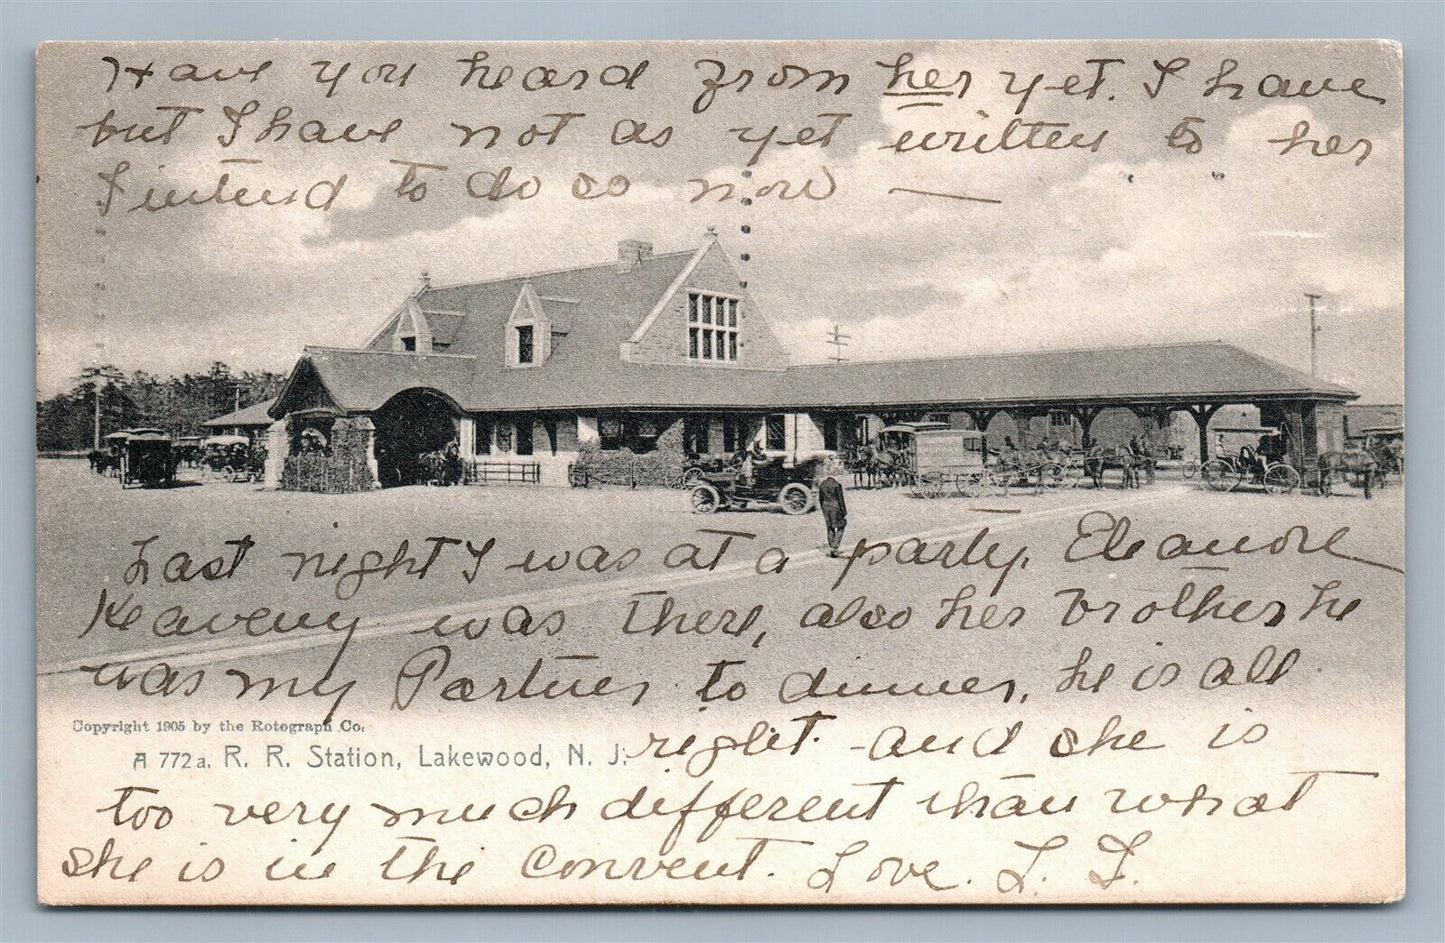 Have you heard from her yet. I have
but I have not as yet written to her
I intend to do so now —
Last night I was at a party. Eleanore
Heaveny was there, also her brother he
was my Partner to dinner, he is all
Copyright 1905 by the Rotograph Co.
right - and she is
A 772a. R. R. Station, Lakewood, N. J.
too very much different than what
she is in the Convent. Love. L. F.